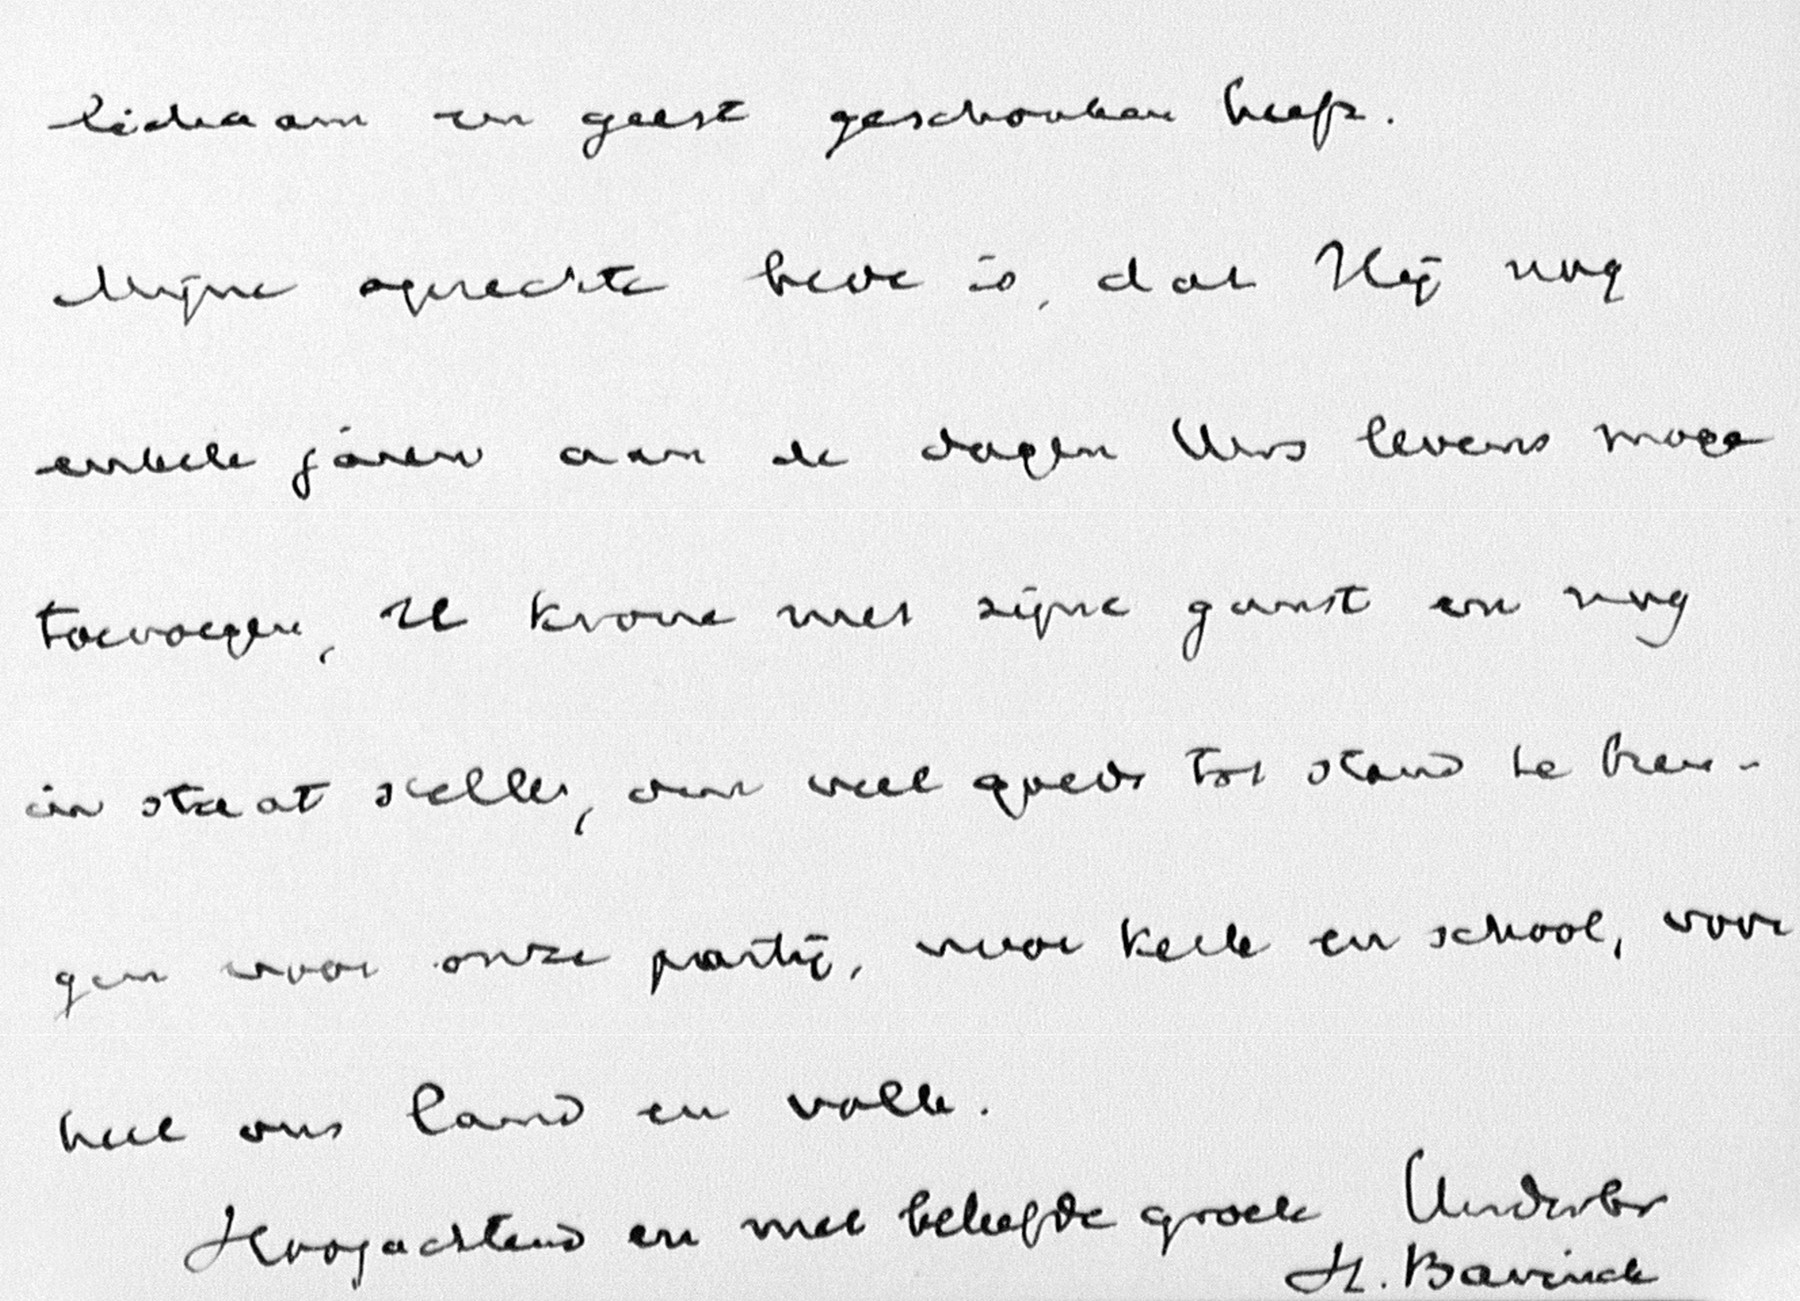 lichaam en geest geschonken heeft.
Mijne oprechte bede is, dat Hij nog
enkele jaren aan de dagen Uws levens moge
toevoegen, U krone met zijne gunst en nog
in staat stelle, om veel goeds tot stand te bren-
gen voor onze partij, voor kerk en school, voor
heel ons land en volk.
Hoogachtend en met beleefde groete Uwdwbr
H. Bavinck